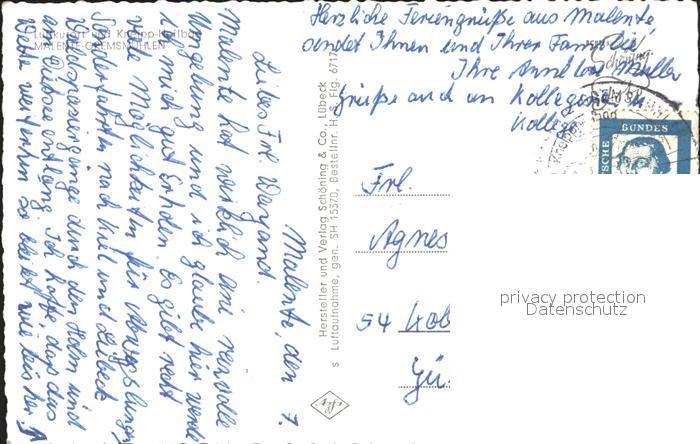 Luftkurort und Kneipp-Heilbad
MALENTE-GREMSMÜHLEN
Malente, den 7.
Liebes Frl. Weyand.
Malente hat wirklich eine reizvolle
Umgebung und ich glaube hier werde
ich mich gut erholen. Es gibt recht
viele Möglichkeiten für Abwechslung
Sonderfahrten nach Kiel und Lübeck
Waldspaziergänge durch den Holm und
am Dieksee entlang. Ich hoffe, dass das
Wetter weiterhin so bleibt wie bisher.
Herzliche Feriengrüße aus Malente
sendet Ihnen und Ihrer Familie
Ihre Annelore Müller
Grüße auch an Kolleginnen u
Kollegen
Schöning
DEUTSCHE BUNDES
Hersteller und Verlag Schöning & Co., Lübeck
s Luftaufnahme, gen. SH 15370, Bestellnr. H. S. Flg. 671
Frl.
Agnes
54 Kob
Gü.
privacy protection
Datenschutz